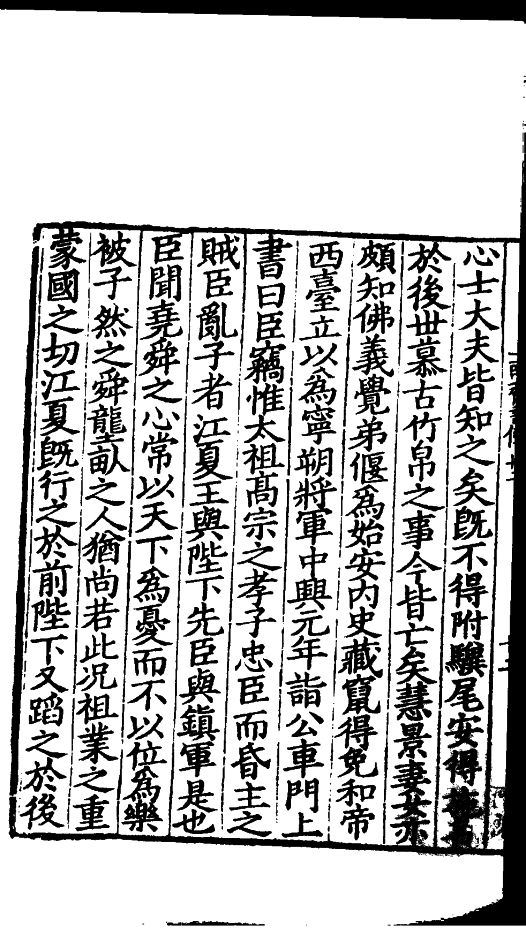 心士大夫皆知之矣旣不得附驥尾安得
於後世慕古竹帛之事今皆亡矣慧景妻女亦
頗知佛義覺弟偃爲始安內史藏竄得免和帝
西臺立以爲寧朔將軍中興元年詣公車門上
書曰臣竊惟太祖髙宗之孝子忠臣而昏主之
賊臣亂子者江夏王與陛下先臣與鎭軍是也
臣聞堯舜之心常以天下爲憂而不以位爲樂
被孑然之舜壟畝之人猶尚若此况祖業之重
蒙國之切江夏旣行之於前陛下又蹈之於後